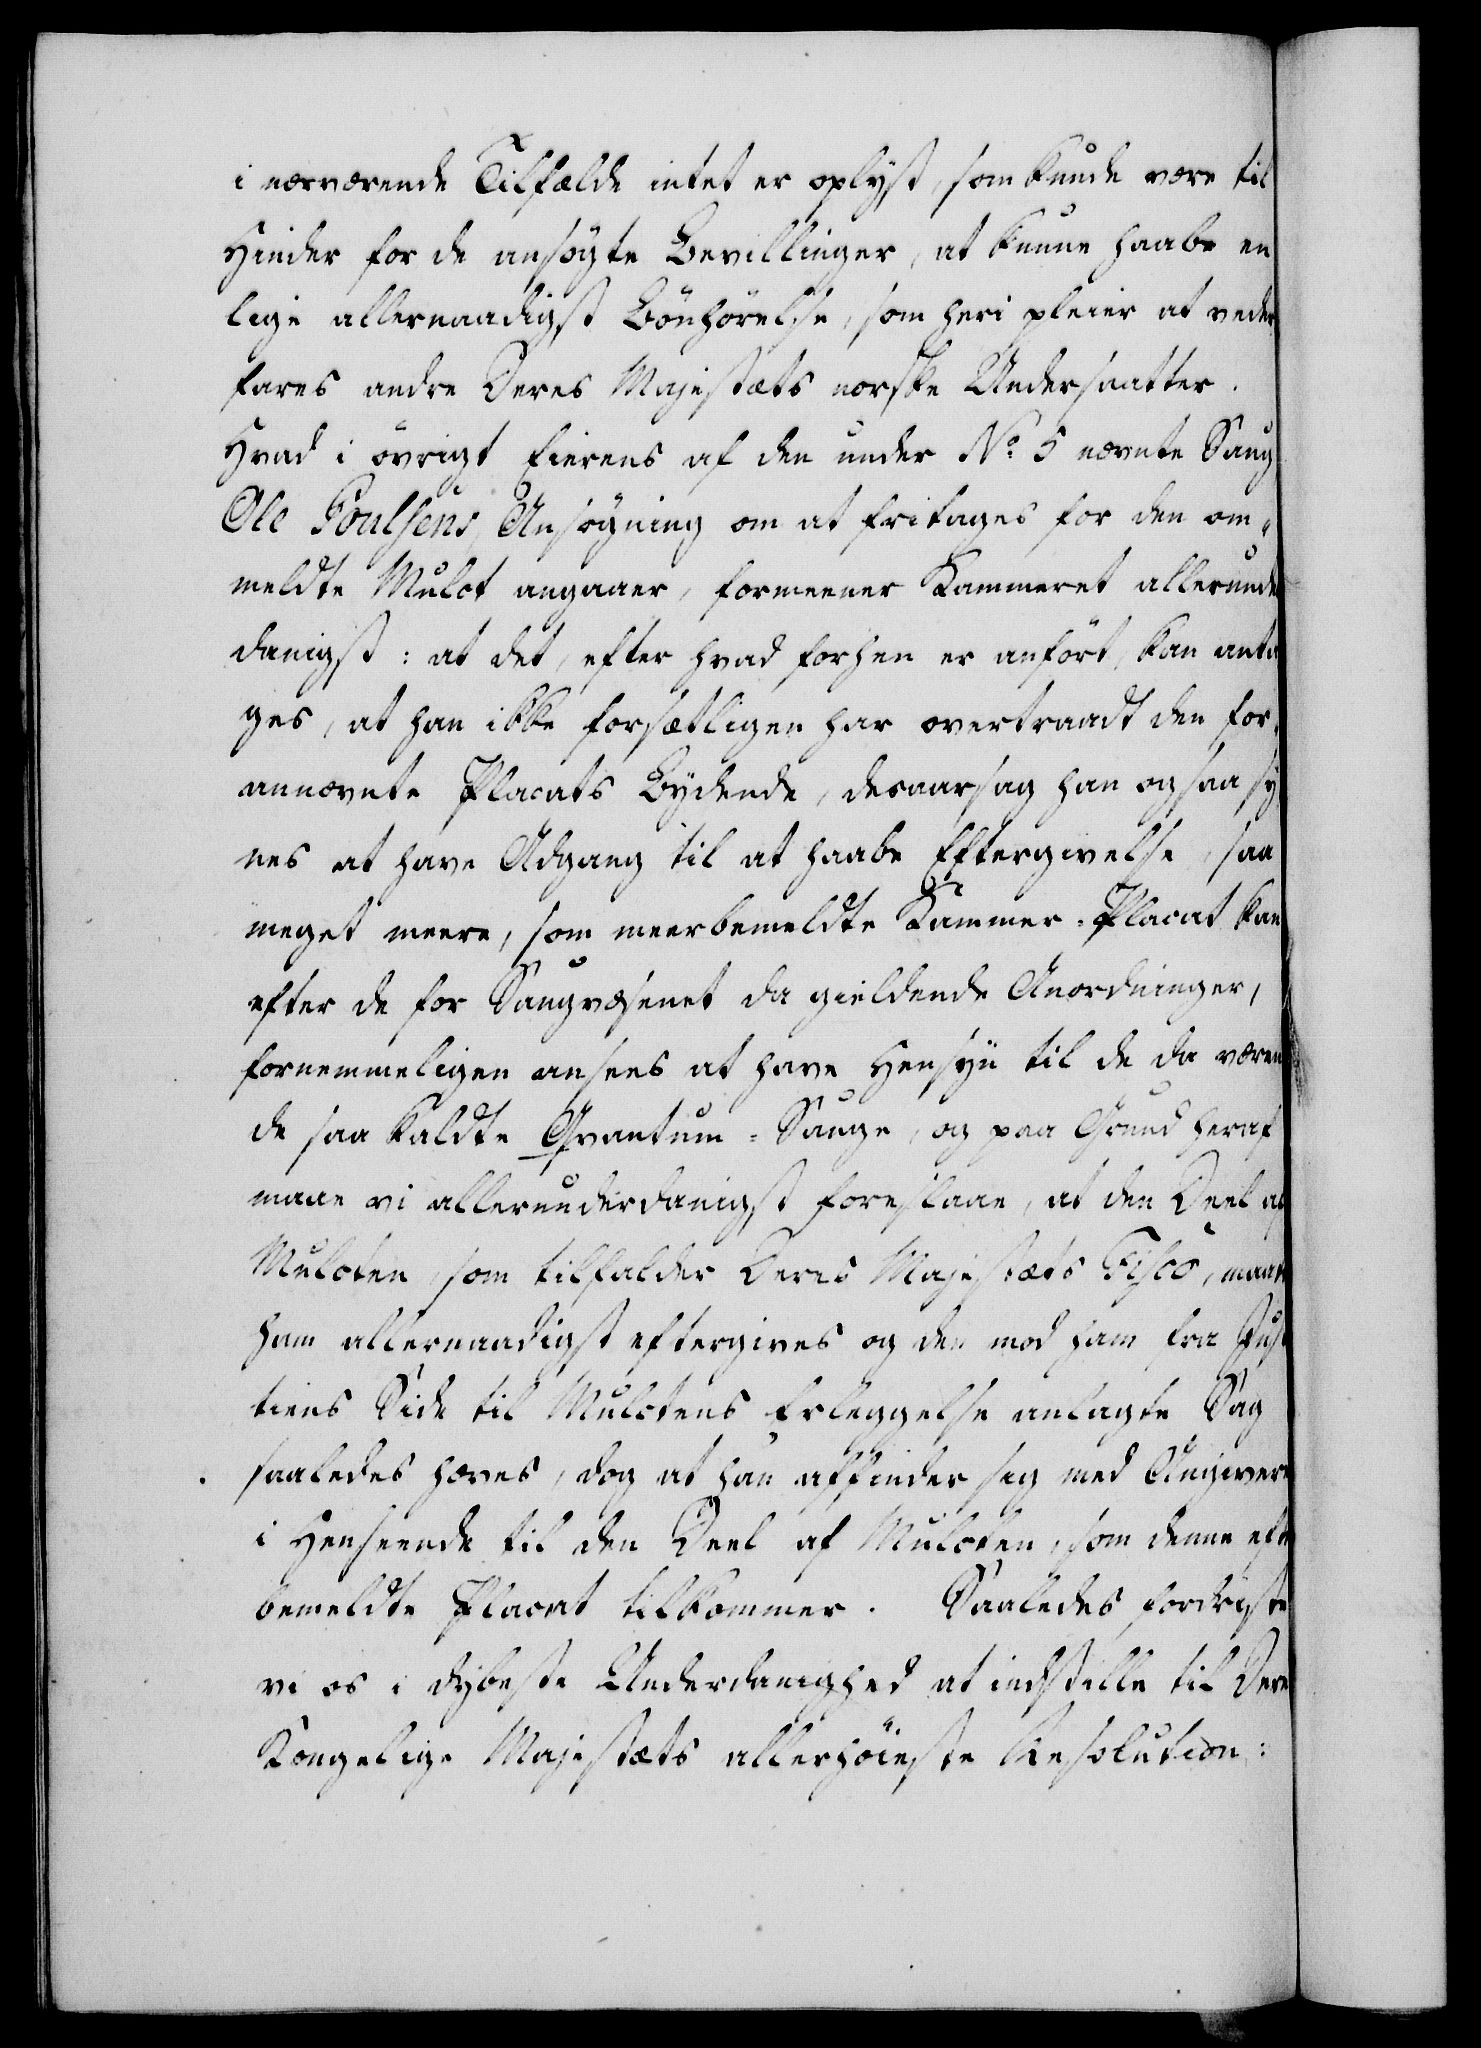 i nærværende Tilfælde intet er oplyst, som kunde være til
Hinder for de ansøgte Bevillinger, at kunne haabe en
lige allernaadigst Bönhörelse, som heri pleier at veder
fares andre Deres Majestæts norske Undersaatter.
Hvad i övrigt Eierens af den under No. 5 nævnte Saug
Ole Poulsens Ansögning om at fritages for den om-
meldte Mulct angaaer, formeener Kammeret allerunder
danigst: at det, efter hvad forhen er anfört, kan anta
ges, at han ikke forsætligen har overtraadt den for-
annævnte Placats Bydende, desaarsag han ogsaa sy
nes at have Adgang til at haabe Eftergivelse, saa
meget meere, som meerbemeldte Kammer-Placat kan
efter de for Saugvæsenet da gieldende Anordninger,
fornemmeligen ansees at have Hensyn til de da væren
de saa kaldte Qvantum-Sauge, og paa Grund heraf
maae vi allerunderdanigst foreslaae, at den Deel af
Mulcten, som tilfalder Deres Majestæts Fisco, maae
ham allernaadigst eftergives og den mod ham fra Jus
tiens Side til Mulctens Erleggelse anlagte Sag
saaledes hæves, dog at han affinder sig med Angivere
i Henseende til den Deel af Mulcten, som denne efter
bemeldte Placat tilkommer. Saaledes fordriste
vi os i dybeste Underdanighed at indstille til Deres
Kongelige Majestæts allerhöieste Resolution: